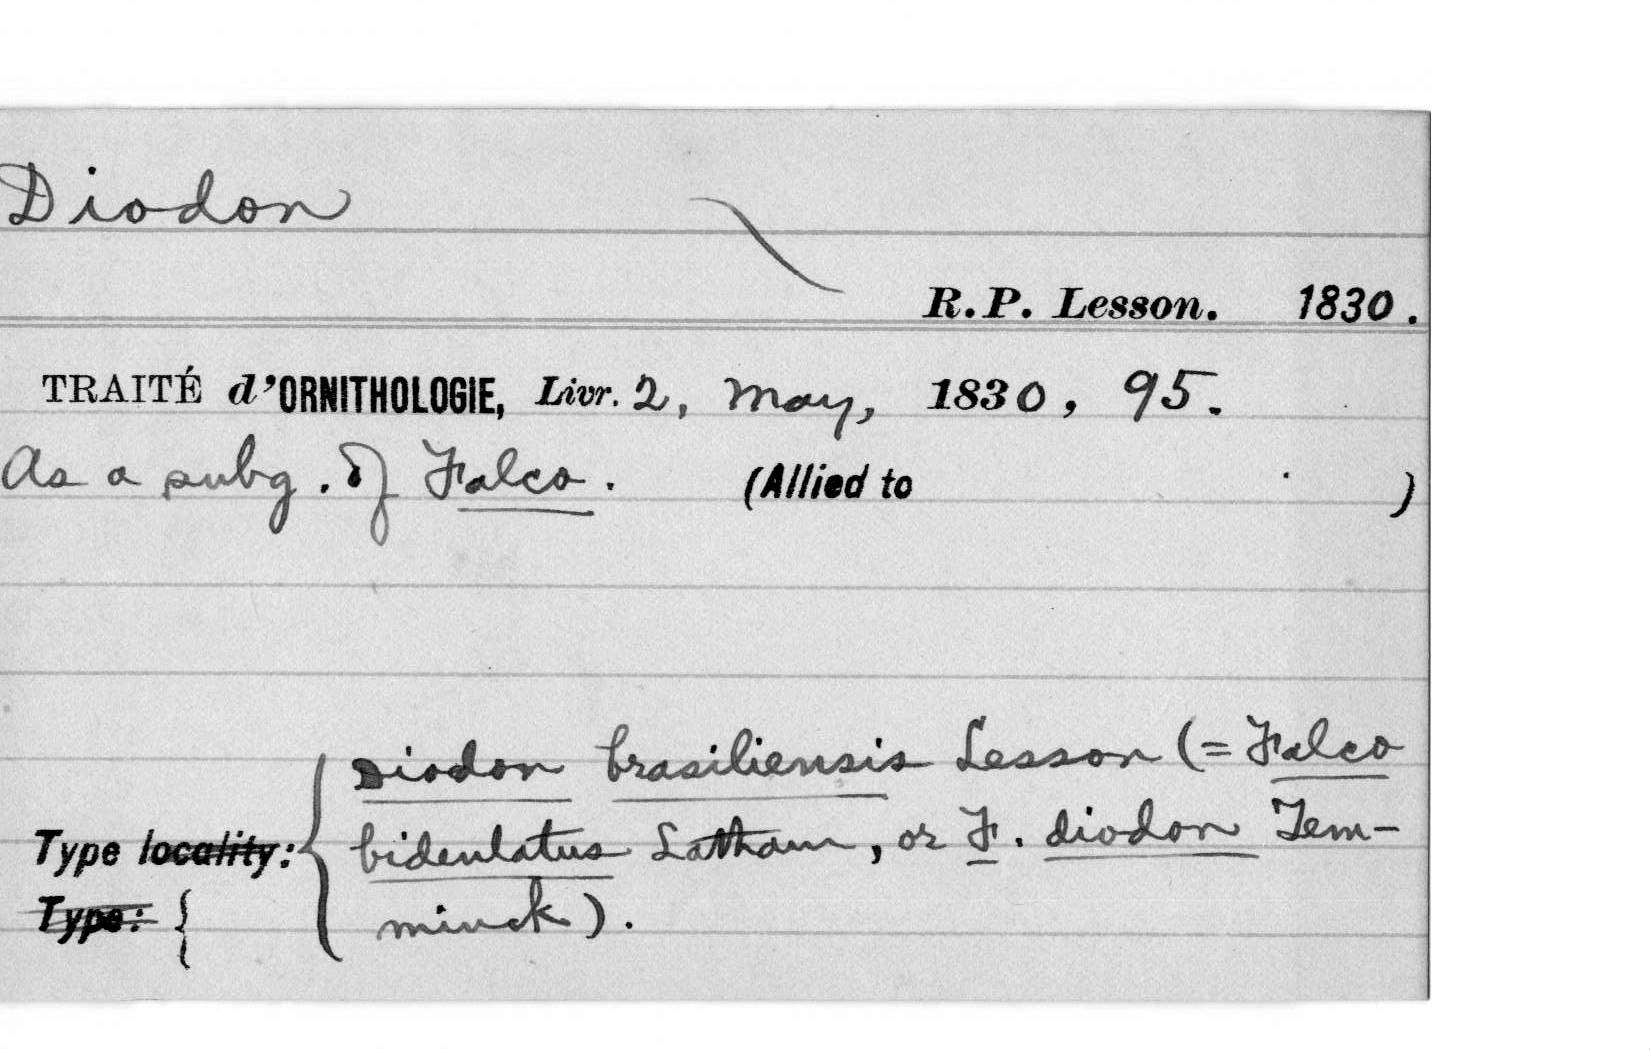 Diodon
R.P. Lesson. 1830.
TRAITÉ d'ORNITHOLOGIE, Livr. 2, May, 1830, 95.
As a subg. of Falco. (Allied to )
Diodon brasiliensis Lesson (= Falco
Type locality: { bidentatus Latham, or F. diodon Tem-
Type: { minck).